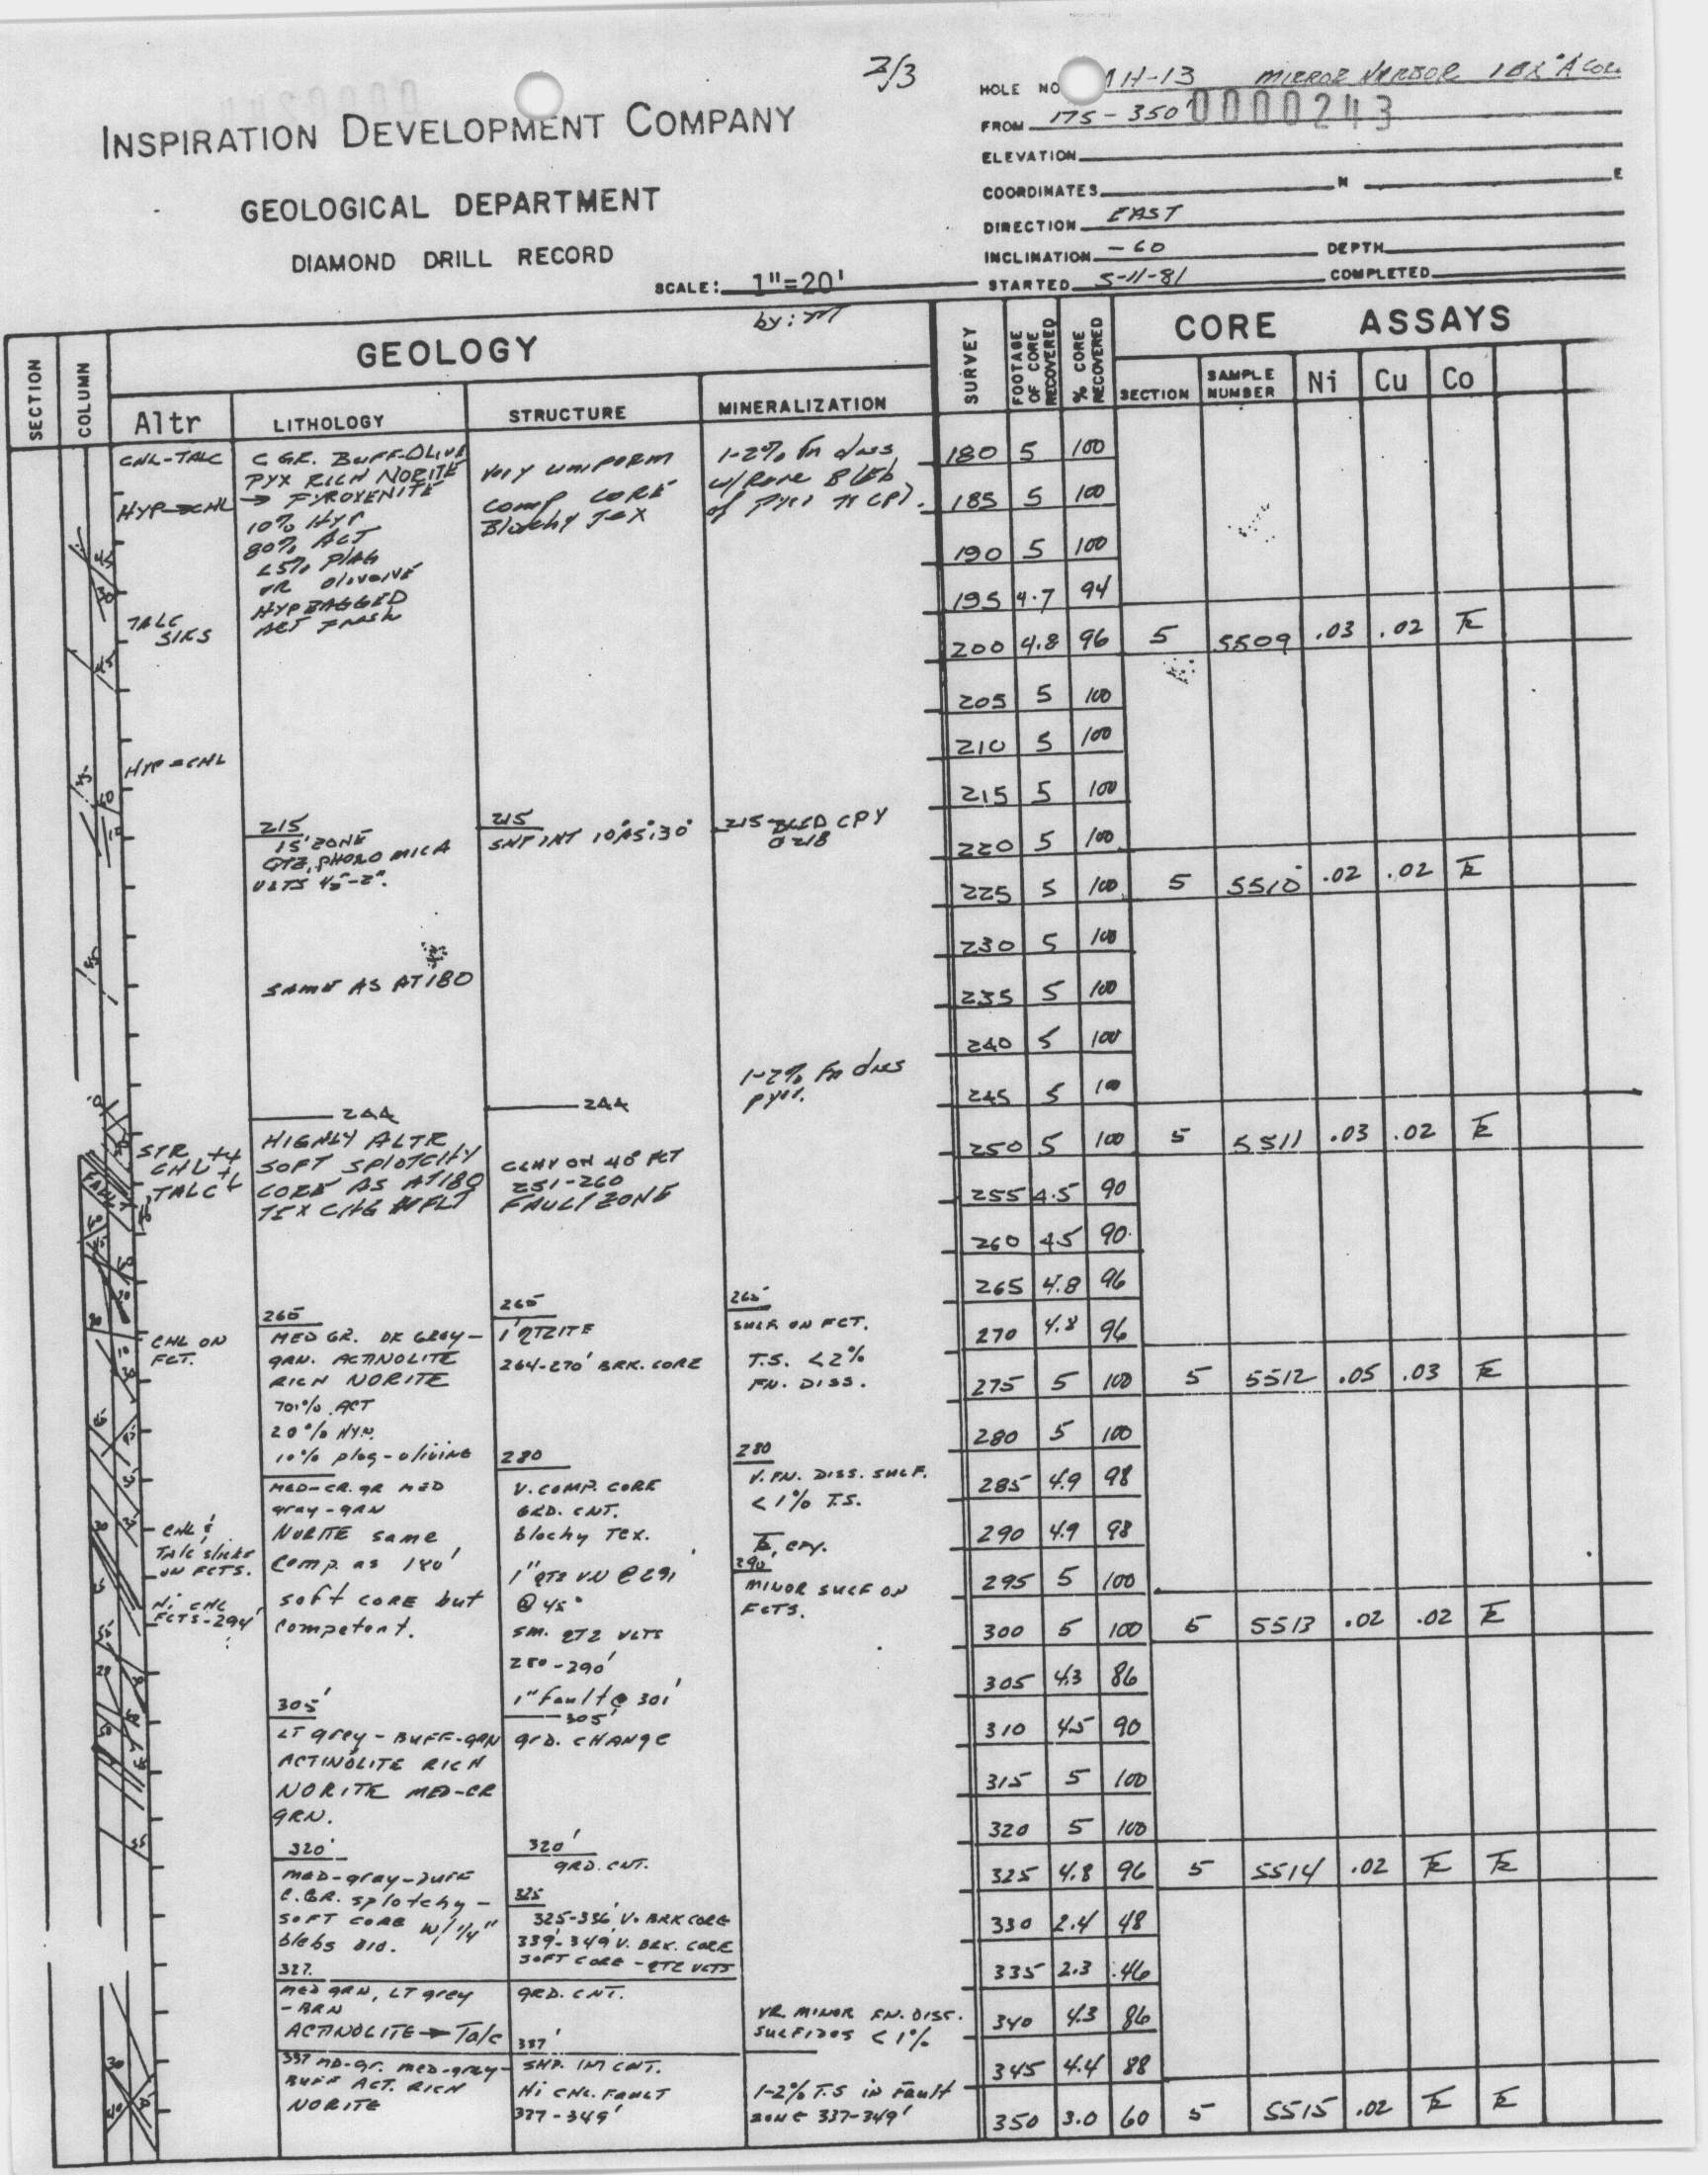 2/3
HOLE NO. MH-13 MIRROR HARBOR 1 1/2 X "A" COL.
INSPIRATION DEVELOPMENT COMPANY
FROM 175 - 350' 0000243
ELEVATION
GEOLOGICAL DEPARTMENT
COORDINATES N E
DIRECTION EAST
DIAMOND DRILL RECORD
INCLINATION -60 DEPTH
SCALE: 1"=20' STARTED 5-11-81 COMPLETED
by:
SECTION COLUMN GEOLOGY SURVEY FOOTAGE OF CORE RECOVERED % CORE RECOVERED CORE ASSAYS
Altr LITHOLOGY STRUCTURE MINERALIZATION SECTION SAMPLE NUMBER Ni Cu Co
CHL-TALC
HYP→CHL
TALC
SIKS
HYP→CHL
STR
CHL ++
TALC +
FAULT
CHL ON
FCT.
CHL &
Talc slicks
ON FCTS.
Hi CHL
FCTS-294'
C GR. BUFF-OLIVE
PYX RICH NORITE
→ PYROXENITE
10% HYP
80% ACT
<5% PLAG
OR OLIVOIVE
HYP RAGGED
ACT FRESH
215
15' ZONE
QTZ, PHORO MICA
VLTS 1/2"-2".
SAME AS AT 180
244
HIGHLY ALTR
SOFT SPLOTCHY
CORE AS AT 180
TEX CHG W FLT
265
MED GR. DK GRAY-
GRN. ACTINOLITE
RICH NORITE
70% ACT
20% HYP.
10% plag-olivine
MED-CR. GR MED
gray-GRN
NORITE same
Comp. as 180'
soft CORE but
Competent.
305'
LT grey - BUFF-GRN
ACTINOLITE RICH
NORITE MED-CR
GRN.
320'
MED-gray-BUFF
C. GR. splotchy-
SOFT CORE W/ 1/4"
blebs
327.
MED GRN, LT grey
-BRN
ACTINOLITE → Talc
337 MD-Gr. med-gray-
BUFF ACT. RICH
NORITE
Very UNIFORM
comp CORE
Blotchy Tex
215
SHP INT 10°, 15°, 30°
244
CLAY ON 40° FCT
251-260
FAULT ZONE
265
1' QTZITE
264-270' BRK. CORE
280
V. COMP. CORE
GRD. CNT.
blochy Tex.
1" QTZ VN @ 291'
@ 45°
SM. QTZ VLTS
280-290'
1" fault @ 301'
305'
grd. CHANGE
320'
GRD. CNT.
325
325-336' V. BRK CORE
339'-349' V. BRK. CORE
SOFT CORE - QTZ VLTS
GRD. CNT.
337'
SHP. INT CNT.
Hi CHL. FAULT
337-349'
1-2% fn diss
w/ Rare Bleb
of Pyrr & CPY.
215 BLED CPY
@ 218
1-2% Fn diss
pyrr.
265'
SULF. ON FCT.
T.S. <2%
FN. DISS.
280
V. FN. DISS. SULF.
<1% T.S.
Tr. CPY.
290'
MINOR SULF ON
FCTS.
VR MINOR FN. DISS.
SULFIDES <1%
1-2% T.S in Fault
ZONE 337-349'
180 5 100
185 5 100
190 5 100
195 4.7 94
200 4.8 96 5 5509 .03 .02 Tr
205 5 100
210 5 100
215 5 100
220 5 100
225 5 100 5 5510 .02 .02 Tr
230 5 100
235 5 100
240 5 100
245 5 100
250 5 100 5 5511 .03 .02 Tr
255 4.5 90
260 4.5 90
265 4.8 96
270 4.8 96
275 5 100 5 5512 .05 .03 Tr
280 5 100
285 4.9 98
290 4.9 98
295 5 100
300 5 100 5 5513 .02 .02 Tr
305 4.3 86
310 4.5 90
315 5 100
320 5 100
325 4.8 96 5 5514 .02 Tr Tr
330 2.4 48
335 2.3 46
340 4.3 86
345 4.4 88
350 3.0 60 5 5515 .02 Tr Tr